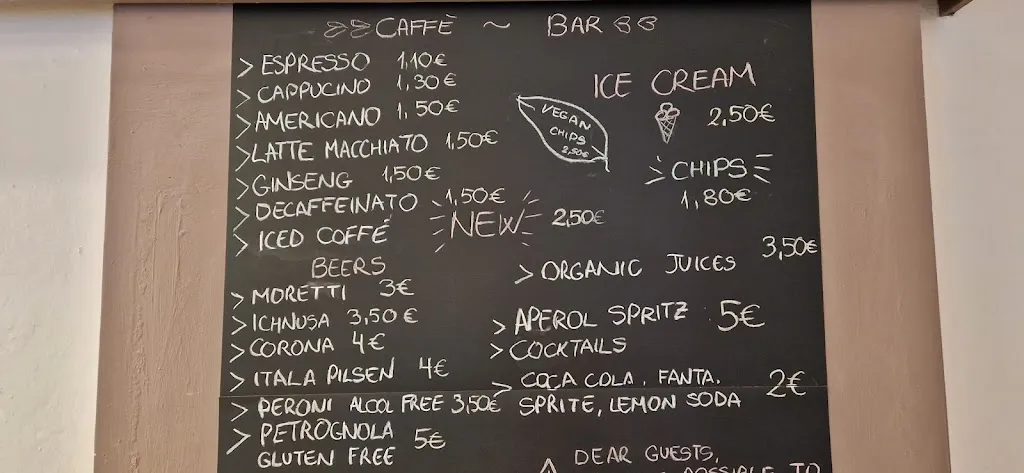 CAFFÈ ~ BAR
> ESPRESSO 1,10€
> CAPPUCINO 1,30€
> AMERICANO 1,50€
> LATTE MACCHIATO 1,50€
> GINSENG 1,50€
> DECAFFEINATO 1,50€
> ICED COFFÉ NEW 2,50€
BEERS
> MORETTI 3€
> ICHNUSA 3,50€
> CORONA 4€
> ITALA PILSEN 4€
> PERONI ALCOL FREE 3,50€
> PETROGNOLA 5€
GLUTEN FREE
ICE CREAM
2,50€
VEGAN
CHIPS
2,50€
CHIPS
1,80€
> ORGANIC JUICES 3,50€
> APEROL SPRITZ 5€
> COCKTAILS
> COCA COLA, FANTA, 2€
SPRITE, LEMON SODA
DEAR GUESTS,
POSSIBLE TO